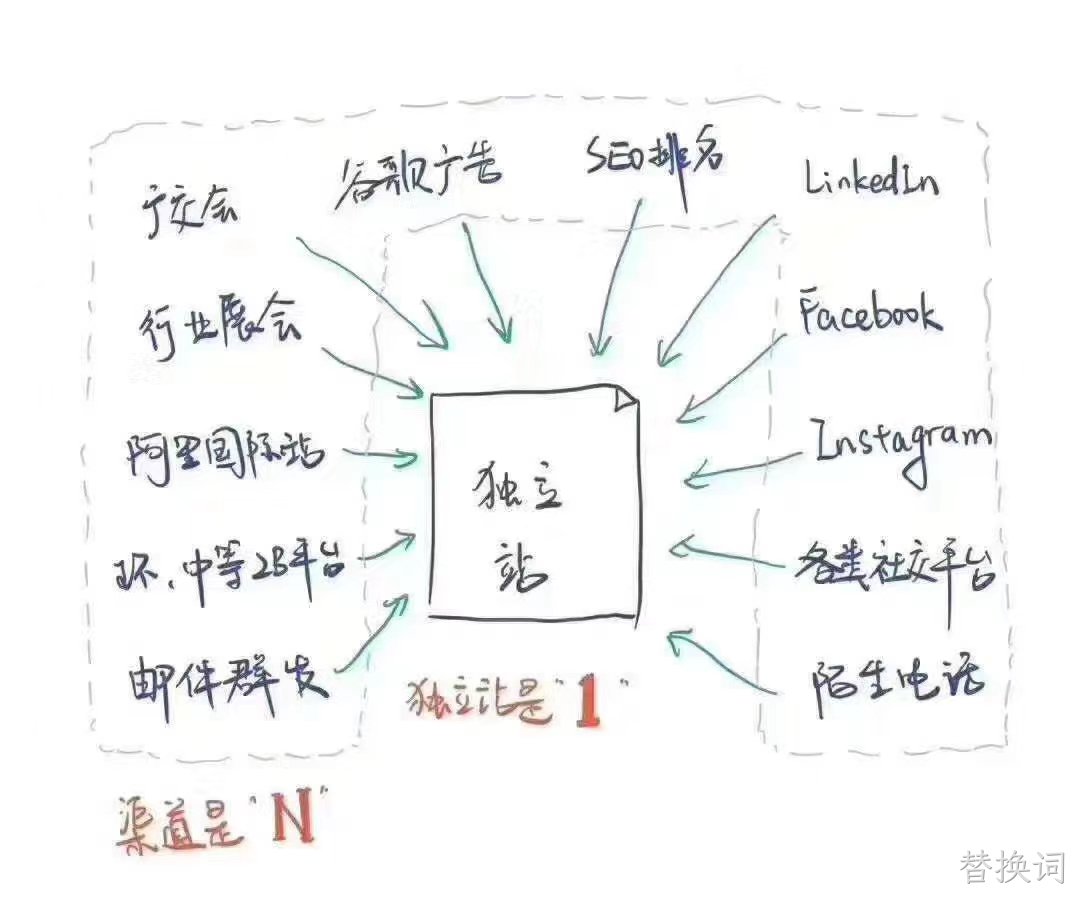 广交会
谷歌广告
SEO排名
LinkedIn
行业展会
Facebook
阿里国际站
Instagram
环、中等2B平台
各类社交平台
邮件群发
陌生电话
独立
站
独立站是"1"
渠道是"N"
替换词